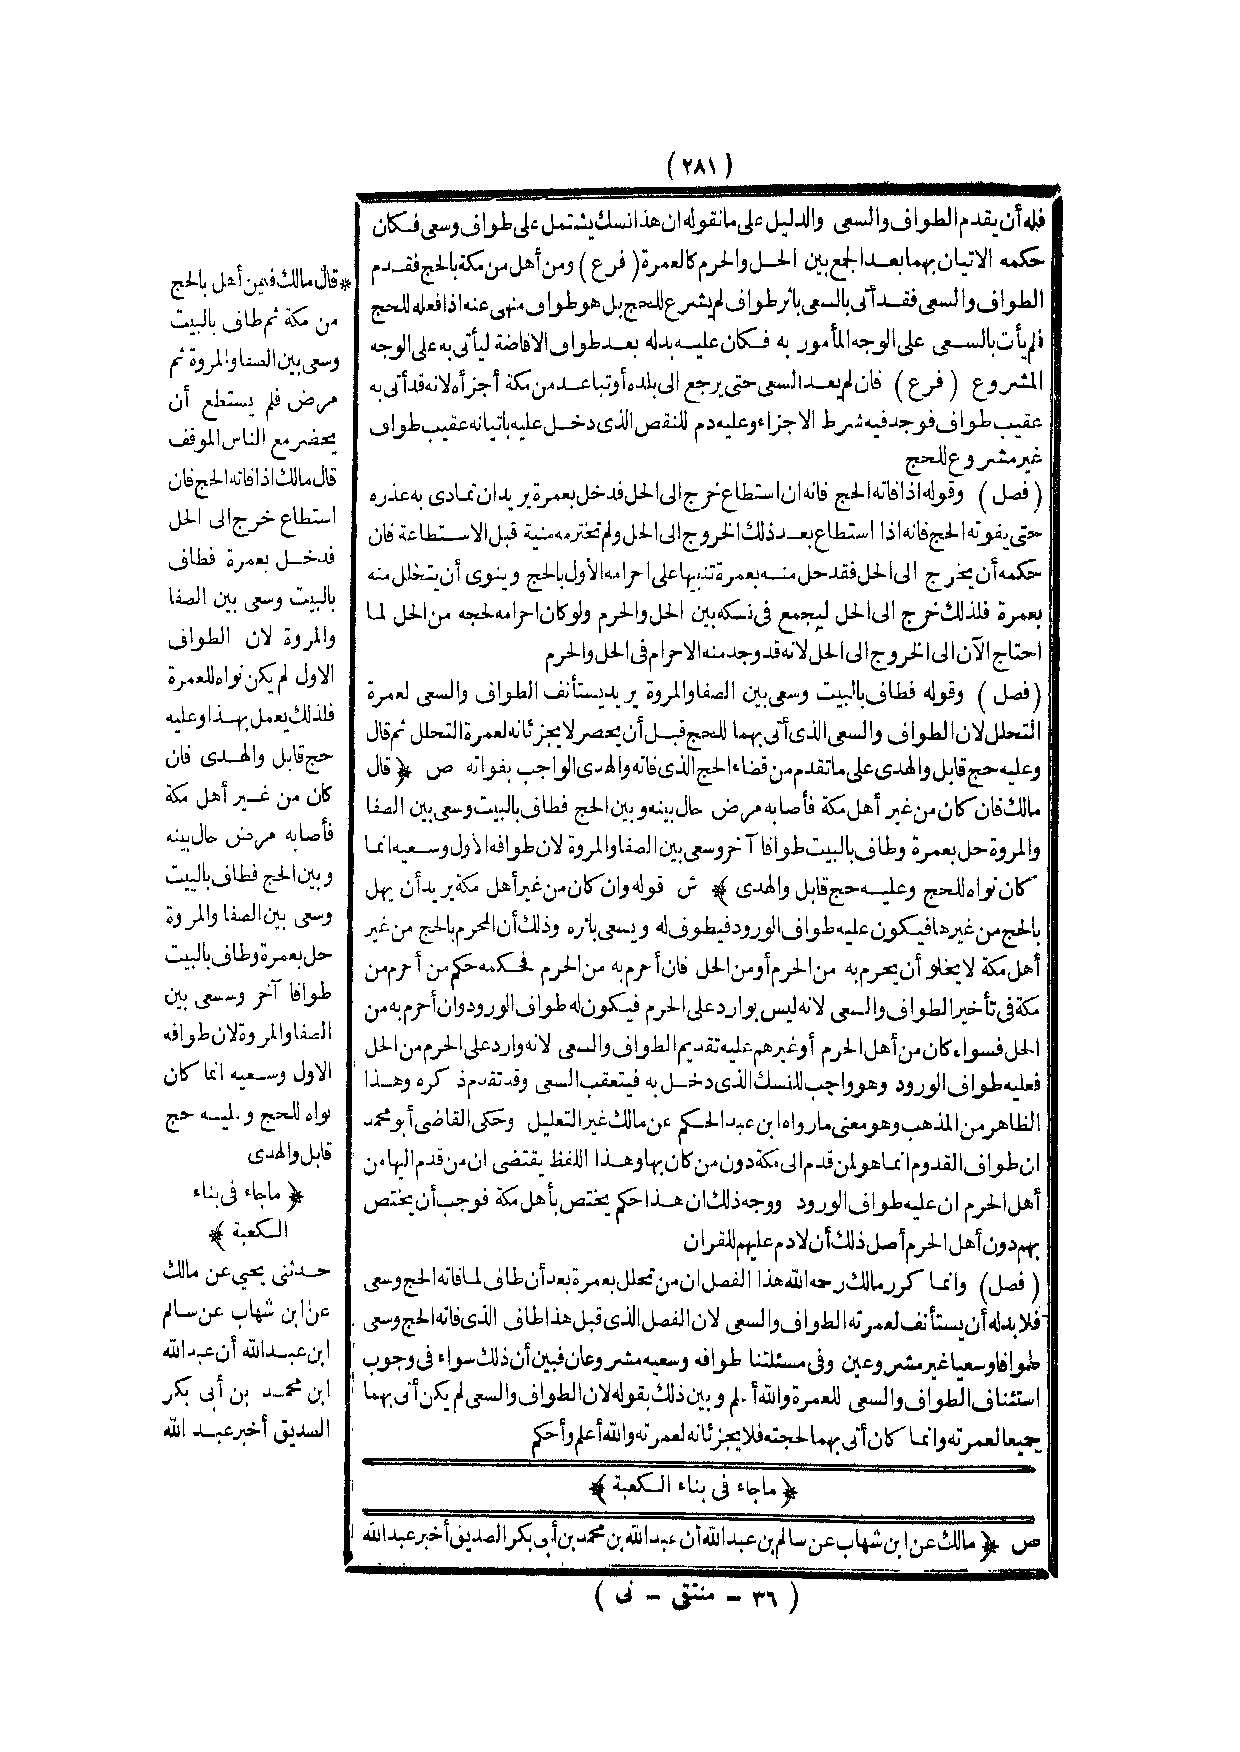 (٢٨١)
فله أن يقدم الطواف والسعى والدليل على ما نقوله ان هذا نسك يشتمل على طواف وسعى فكان
حكمه الاتيان بهما بعد الجمع بين الحل والحرم كالعمرة (فرع) ومن أهل من مكة بالحج فقدم
الطواف والسعى فقد أتى بالسعى باثر طواف لم يشرع للحج بل هو طواف منهى عنه اذا فعله للحج
فلم يأت بالسعى على الوجه المأمور به فكان عليه بدله بعد طواف الافاضة ليأتى به على الوجه
المشروع (فرع) فان لم يعد السعى حتى يرجع الى بلده أو تباعد من مكة أجزأه لانه قد أتى به
عقيب طواف فوجد فيه شرط الاجزاء وعليه دم للنقص الذى دخل عليه باتيانه عقيب طواف
غير مشروع للحج
(فصل) وقوله اذا فاته الحج فانه ان استطاع خرج الى الحل فدخل بعمرة يريد ان تمادى به عذره
حتى يفوته الحج فانه اذا استطاع بعد ذلك الخروج الى الحل ولم تخترمه منية قبل الاستطاعة فان
حكمه أن يخرج الى الحل فقد حل منه بعمرة تنبيها على احرامه الأول بالحج وينوى أن يتحلل منه
بعمرة فلذلك خرج الى الحل ليجمع فى نسكه بين الحل والحرم ولو كان احرامه لحجه من الحل لما
احتاج الآن الى الخروج الى الحل لانه قد وجد منه الاحرام فى الحل والحرم
(فصل) وقوله فطاف بالبيت وسعى بين الصفا والمروة يريد يستأنف الطواف والسعى لعمرة
التحلل لان الطواف والسعى الذى أتى بهما للحج قبل أن يحصر لا يجزئانه لعمرة التحلل ثم قال
وعليه حج قابل والهدى على ما تقدم من قضاء الحج الذى فاته والهدى الواجب بفواته ص ﴿ قال
مالك فان كان من غير أهل مكة فأصابه مرض حال بينه وبين الحج فطاف بالبيت وسعى بين الصفا
والمروة حل بعمرة وطاف بالبيت طوافا آخر وسعى بين الصفا والمروة لان طوافه الأول وسعيه انما
كان نواه للحج وعليه حج قابل والهدى ﴾ ش قوله وان كان من غير أهل مكة يريد أن يهل
بالحج من غيرها فيكون عليه طواف الورود فيطوف له ويسعى باثره وذلك أن المحرم بالحج من غير
أهل مكة لا يخلو أن يحرم به من الحرم أو من الحل فان أحرم به من الحرم فحكمه حكم من أحرم من
مكة فى تأخير الطواف والسعى لانه ليس بوارد على الحرم فيكون له طواف الورود وان أحرم به من
الحل فسواء كان من أهل الحرم أو غيرهم عليه تقديم الطواف والسعى لانه وارد على الحرم من الحل
فعليه طواف الورود وهو واجب للنسك الذى دخل به فيتعقب السعى وقد تقدم ذكره وهذا
الظاهر من المذهب وهو معنى ما رواه ابن عبد الحكم عن مالك غير التعليل وحكى القاضى أبو محمد
ان طواف القدوم انما هو لمن قدم الى مكة دون من كان بها وهذا اللفظ يقتضى ان من قدم اليها من
أهل الحرم ان عليه طواف الورود ووجه ذلك ان هذا حكم يختص بأهل مكة فوجب أن يختص
بهم دون أهل الحرم أصل ذلك أن لا دم عليهم للقران
(فصل) وانما كرر مالك رحمه الله هذا الفصل ان من تحلل بعمرة بعد أن طاف لما فاته الحج وسعى
فلا بد له أن يستأنف لعمرته الطواف والسعى لان الفصل الذى قبل هذا طاف الذى فاته الحج وسعى
طوافا وسعيا غير مشروعين وفى مسئلتنا طوافه وسعيه مشروعان فبين أن ذلك سواء فى وجوب
استئناف الطواف والسعى للعمرة والله أعلم وبين ذلك بقوله لان الطواف والسعى لم يكن أتى بهما
جميعا لعمرته وانما كان أتى بهما لحجته فلا يجزئانه لعمرته والله أعلم وأحكم
﴿ ماجاء فى بناء الكعبة ﴾
ص ﴿ مالك عن ابن شهاب عن سالم بن عبد الله أن عبد الله بن محمد بن أبى بكر الصديق أخبر عبد الله
* قال مالك فيمن أهل بالحج
من مكة ثم طاف بالبيت
وسعى بين الصفا والمروة ثم
مرض فلم يستطع أن
يحضر مع الناس الموقف
قال مالك اذا فاته الحج فان
استطاع خرج الى الحل
فدخل بعمرة فطاف
بالبيت وسعى بين الصفا
والمروة لان الطواف
الاول لم يكن نواه للعمرة
فلذلك يعمل بهذا وعليه
حج قابل والهدى فان
كان من غير أهل مكة
فأصابه مرض حال بينه
وبين الحج فطاف بالبيت
وسعى بين الصفا والمروة
حل بعمرة وطاف بالبيت
طوافا آخر وسعى بين
الصفا والمروة لان طوافه
الاول وسعيه انما كان
نواه للحج وعليه حج
قابل والهدى
﴿ ماجاء فى بناء
الكعبة ﴾
حدثنى يحيى عن مالك
عن ابن شهاب عن سالم
ابن عبد الله أن عبد الله
ابن محمد بن أبى بكر
الصديق أخبر عبد الله
(٣٦ - منتقى - نى)